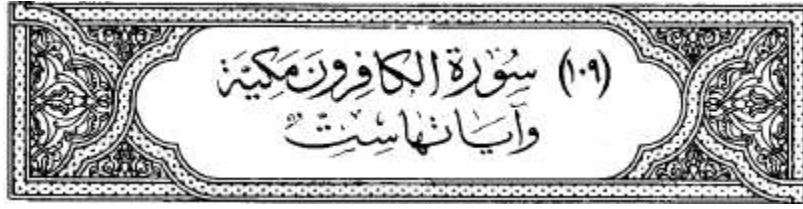 (١٠٩) سُورَة الكافِرونَ مَكيَّة
وَآيَانهَا سِتٌّ